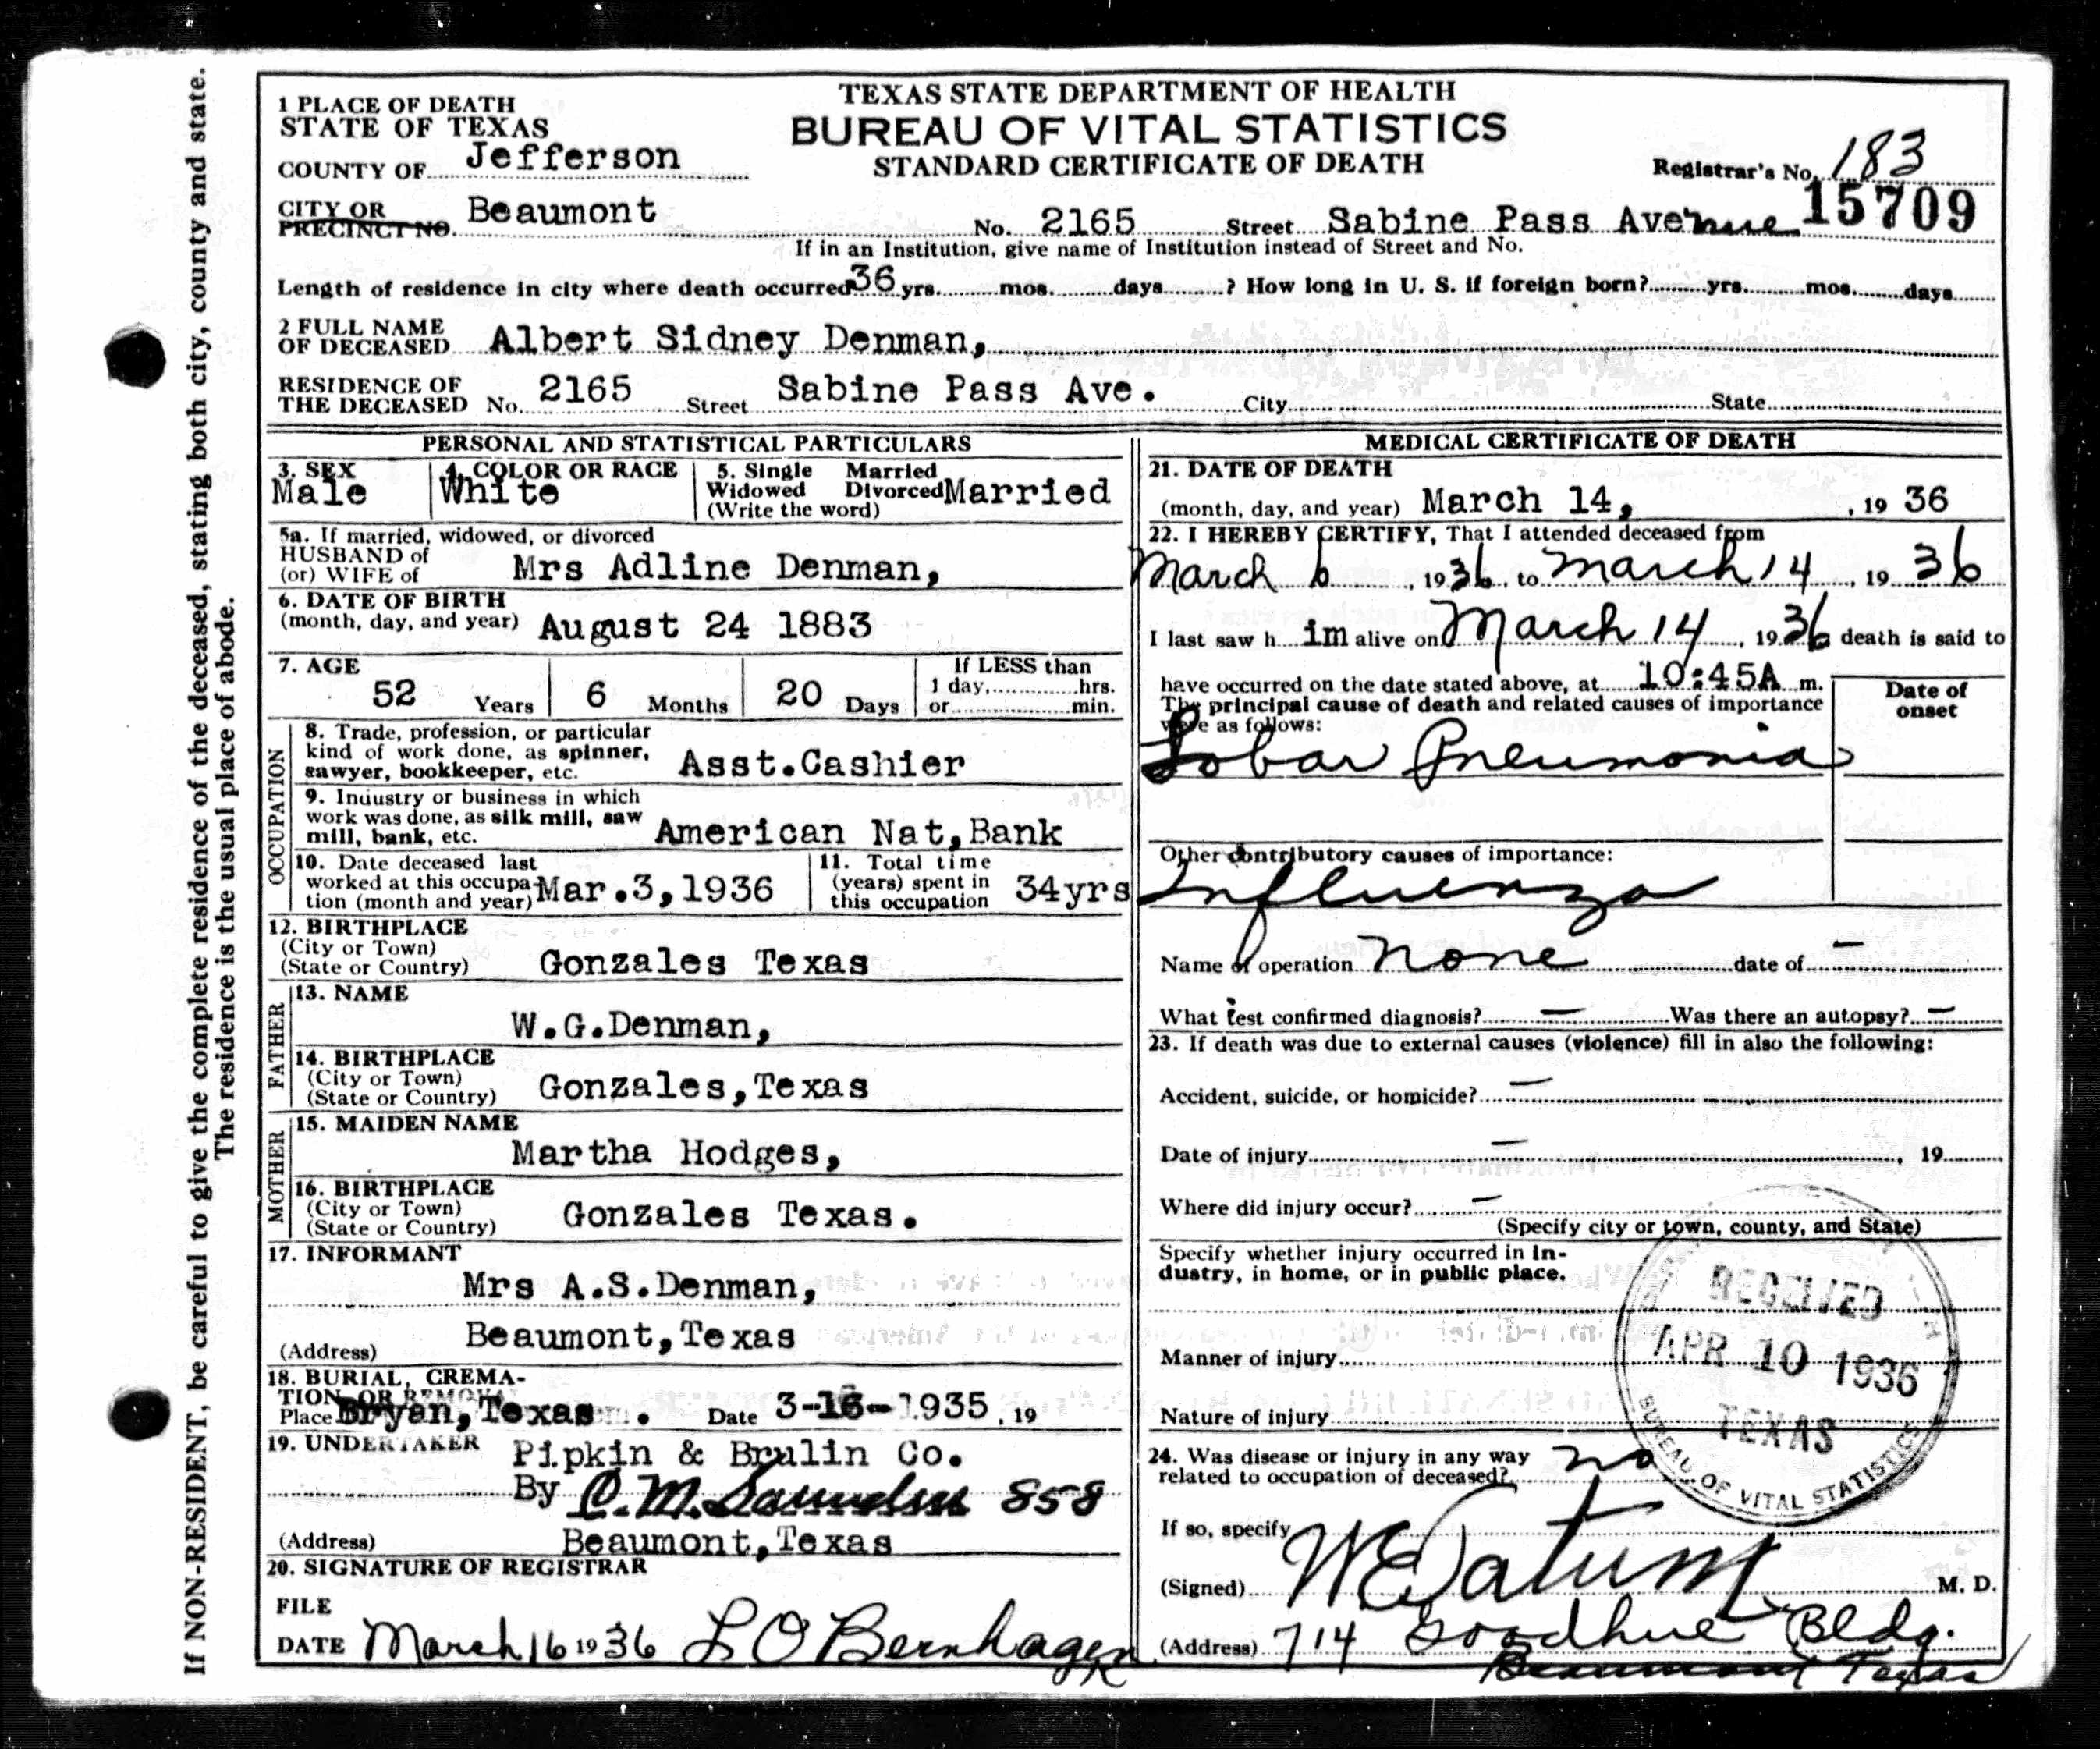 If NON-RESIDENT, be careful to give the complete residence of the deceased, stating both city, county and state.
The residence is the usual place of abode.
TEXAS STATE DEPARTMENT OF HEALTH
BUREAU OF VITAL STATISTICS
STANDARD CERTIFICATE OF DEATH
1 PLACE OF DEATH
STATE OF TEXAS
COUNTY OF Jefferson
Registrar's No. 183
CITY OR PRECINCT NO. Beaumont No. 2165 Street Sabine Pass Avenue 15709
If in an Institution, give name of Institution instead of Street and No.
Length of residence in city where death occurred 36 yrs. mos. days ? How long in U. S. if foreign born? yrs. mos. days
2 FULL NAME OF DECEASED Albert Sidney Denman,
RESIDENCE OF THE DECEASED No. 2165 Street Sabine Pass Ave. City State
PERSONAL AND STATISTICAL PARTICULARS
3. SEX Male
4. COLOR OR RACE White
5. Single Married Widowed Divorced (Write the word) Married
5a. If married, widowed, or divorced
HUSBAND of (or) WIFE of Mrs Adline Denman,
6. DATE OF BIRTH
(month, day, and year) August 24 1883
7. AGE 52 Years 6 Months 20 Days
If LESS than 1 day, hrs. or min.
OCCUPATION
8. Trade, profession, or particular
kind of work done, as spinner,
sawyer, bookkeeper, etc. Asst.Cashier
9. Industry or business in which
work was done, as silk mill, saw
mill, bank, etc. American Nat,Bank
10. Date deceased last
worked at this occupa-
tion (month and year) Mar.3,1936
11. Total time
(years) spent in
this occupation 34yrs
12. BIRTHPLACE
(City or Town)
(State or Country) Gonzales Texas
FATHER
13. NAME
W.G.Denman,
14. BIRTHPLACE
(City or Town)
(State or Country) Gonzales,Texas
MOTHER
15. MAIDEN NAME
Martha Hodges,
16. BIRTHPLACE
(City or Town)
(State or Country) Gonzales Texas.
17. INFORMANT
Mrs A.S.Denman,
(Address) Beaumont,Texas
18. BURIAL, CREMA-
TION OR REMOVAL
Place Bryan, Texas. Date 3-16-1935, 19
19. UNDERTAKER Pipkin & Brulin Co.
By C.M. Saunders 858
(Address) Beaumont,Texas
20. SIGNATURE OF REGISTRAR
FILE
DATE March 16 1936 L O Bernhagen
MEDICAL CERTIFICATE OF DEATH
21. DATE OF DEATH
(month, day, and year) March 14, , 19 36
22. I HEREBY CERTIFY, That I attended deceased from
March 6, 1936, to March 14, 19 36
I last saw h im alive on March 14, 1936 death is said to
have occurred on the date stated above, at 10:45A m.
The principal cause of death and related causes of importance
were as follows:
Date of onset
Lobar Pneumonia
Other contributory causes of importance:
Influenza
Name of operation None date of —
What test confirmed diagnosis? — Was there an autopsy? —
23. If death was due to external causes (violence) fill in also the following:
Accident, suicide, or homicide? —
Date of injury — , 19
Where did injury occur? —
(Specify city or town, county, and State)
Specify whether injury occurred in In-
dustry, in home, or in public place.
Manner of injury
Nature of injury
RECEIVED
APR 10 1936
TEXAS
BUREAU OF VITAL STATISTICS
24. Was disease or injury in any way
related to occupation of deceased? no
If so, specify
(Signed) W E Tatum M. D.
(Address) 714 Goodhue Bldg.
Beaumont Texas